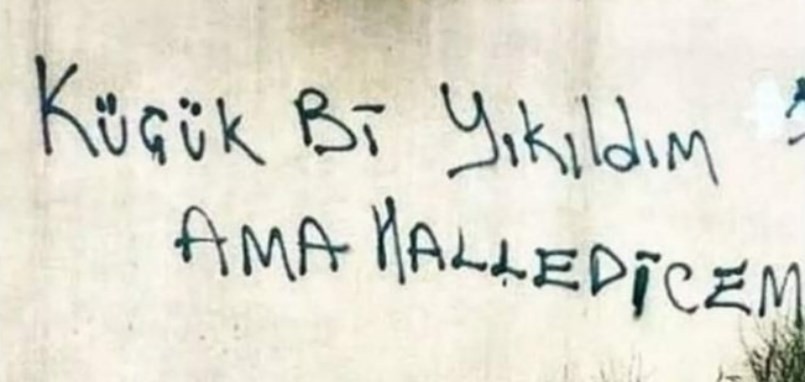 Küçük Bİ Yıkıldım
AMA HALLEDİCEM